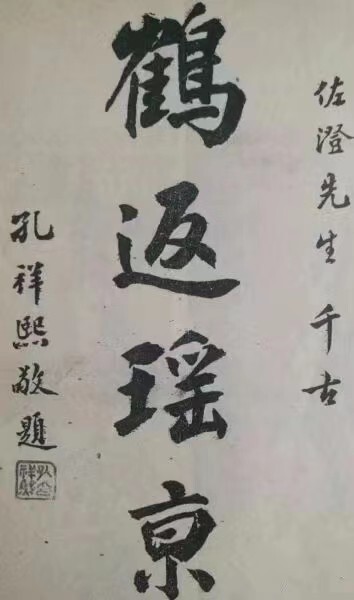 佐澄先生千古
鶴返瑶京
孔祥熙敬題